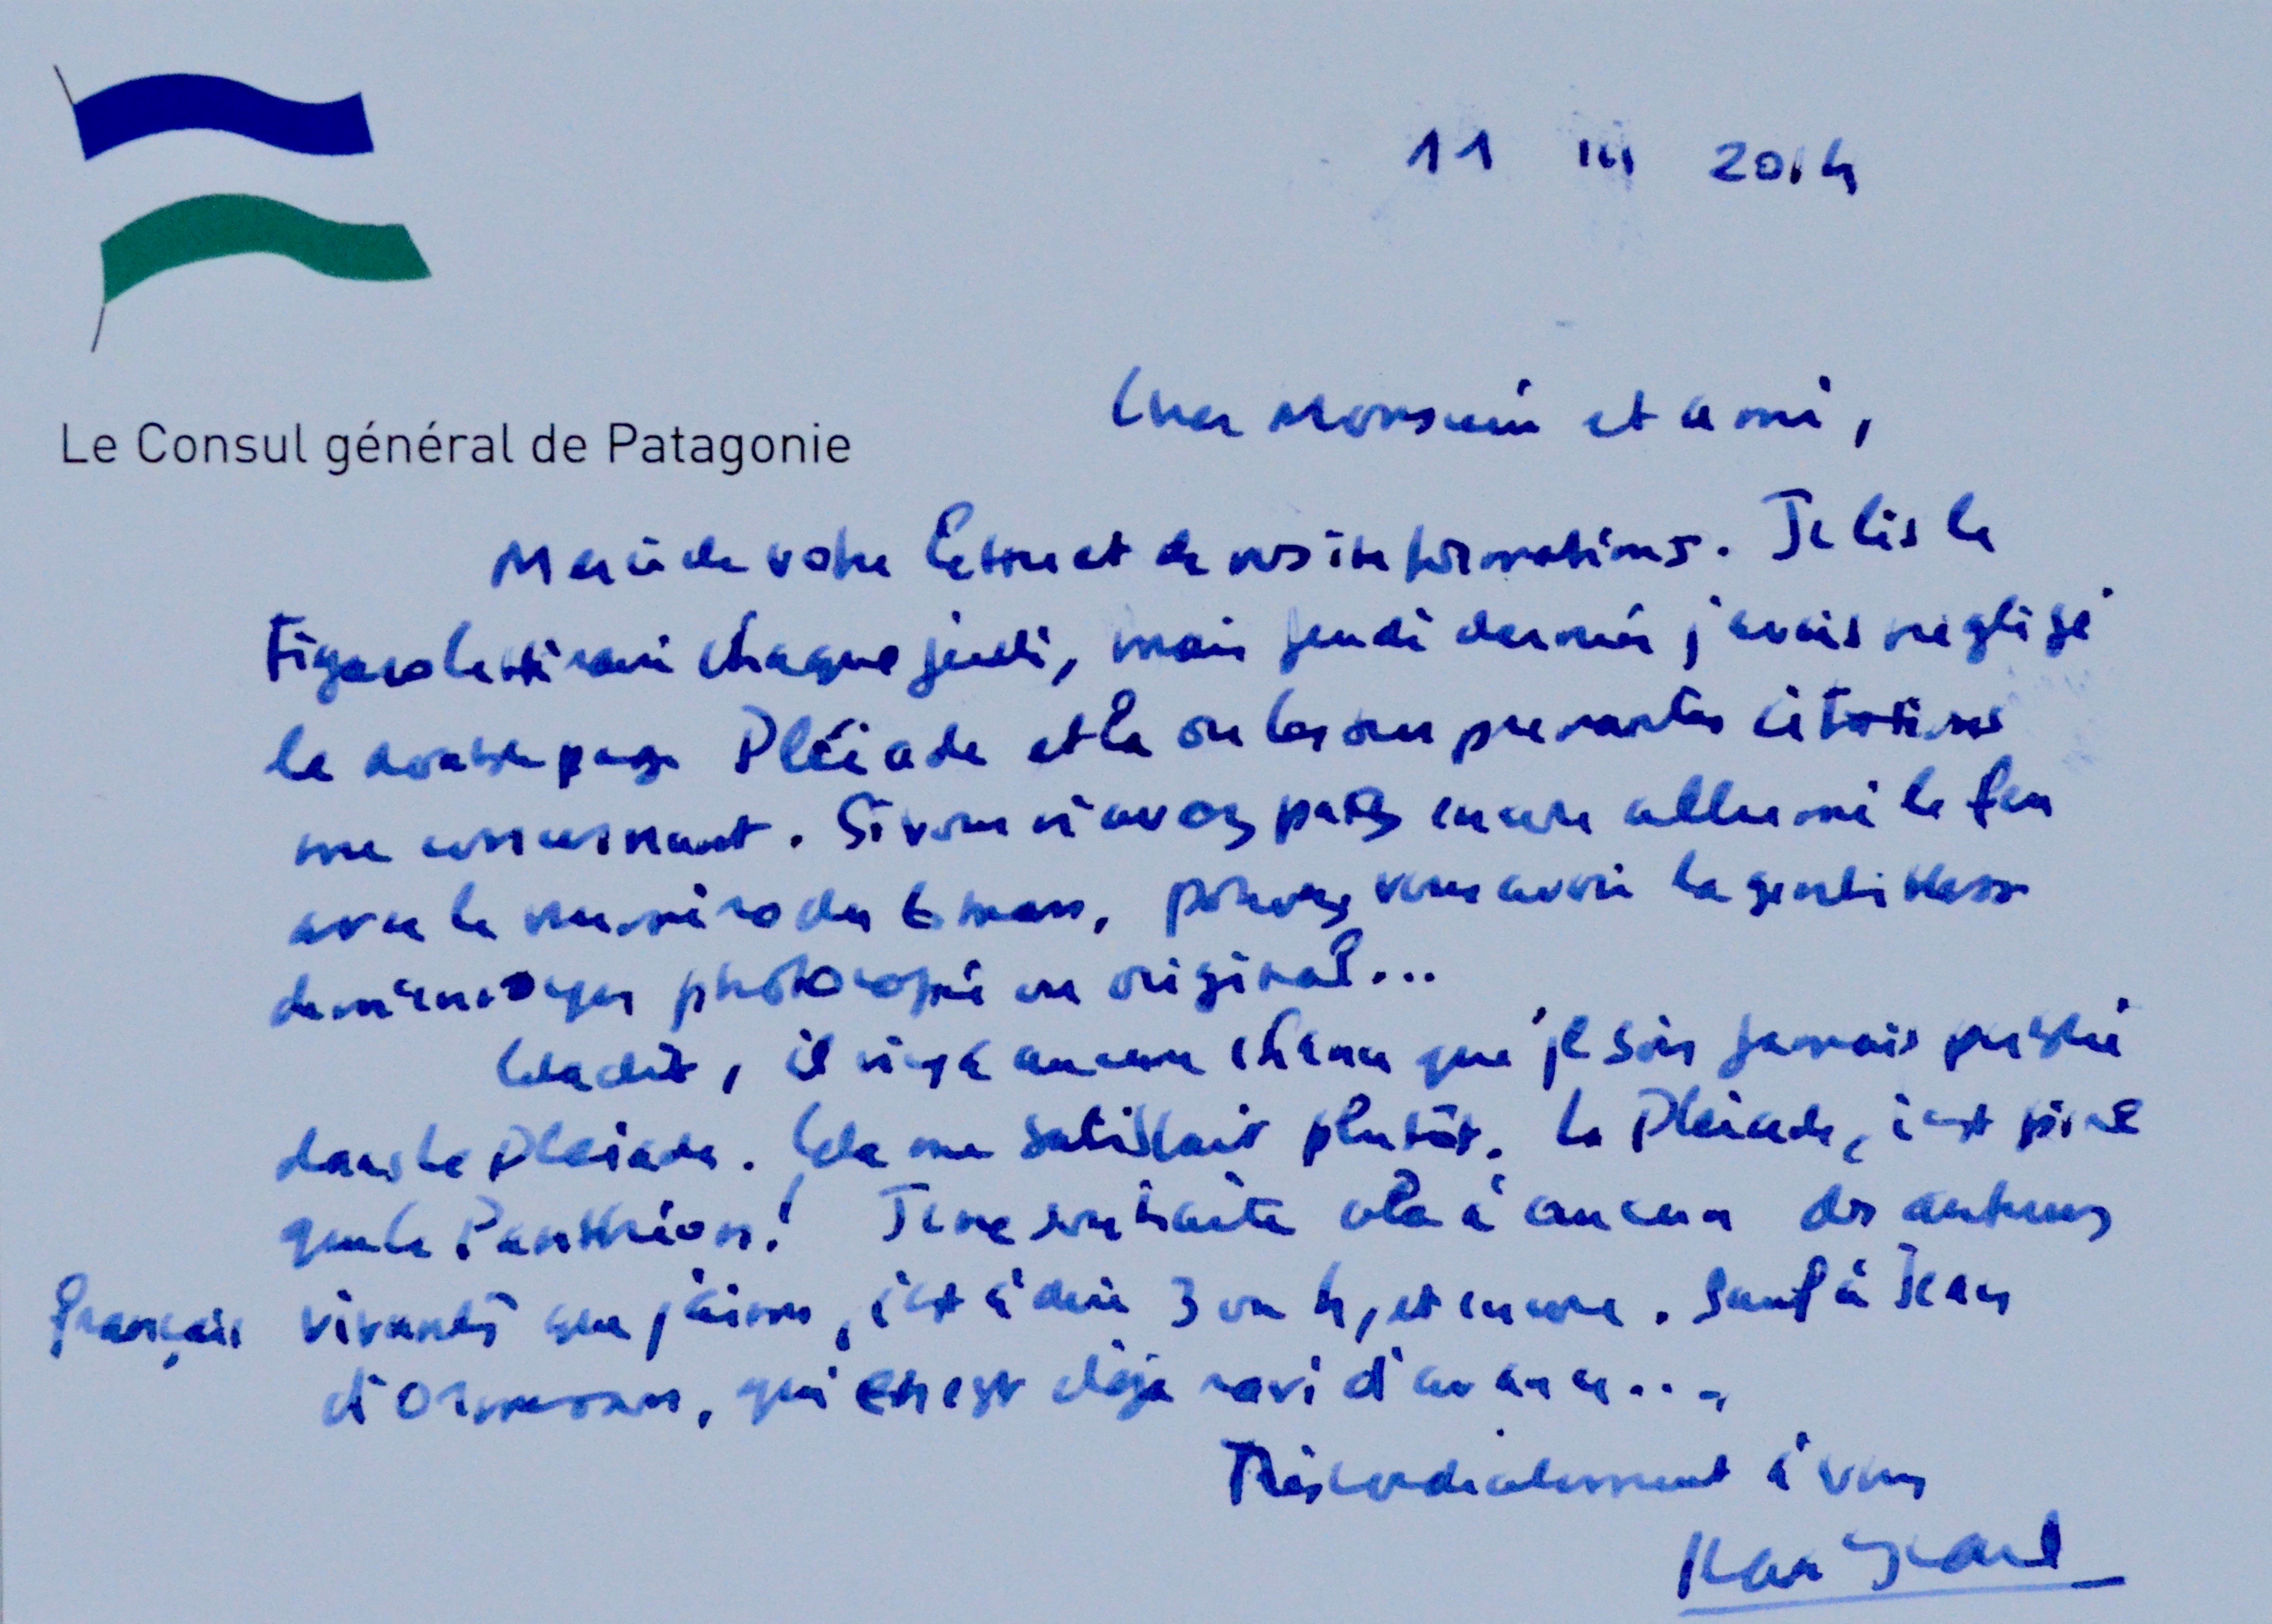 11 III 2014
Le Consul général de Patagonie
Cher Monsieur et ami,
Merci de votre lettre et de vos informations. Je lis le
Figaro littéraire chaque jeudi, mais jeudi dernier j'avais négligé
la page Pléiade et là on les
me concernant. Si vous n'avez pas encore allumé le feu
avec le numéro du 6 mars, pouvez vous avoir la gentillesse
de m'envoyer photocopie ou original...
Cela dit, il n'y a aucune chance que je sois jamais publié
dans la Pléiade. Cela me satisfait plutôt. La Pléiade, c'est pire
que le Panthéon! Je ne souhaite cela à aucun des auteurs
français vivants que j'aime, c'est à dire 3 ou 4, et encore. Sauf à Jean
d'Ormesson, qui en est déjà ravi d'avance...
Très cordialement à vous